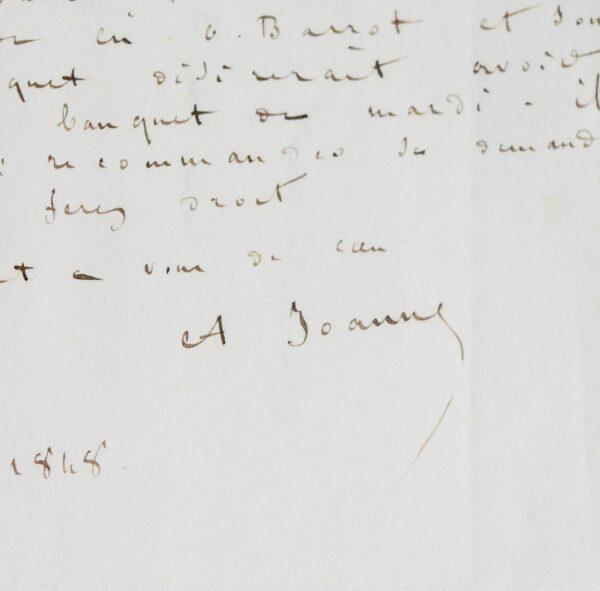 en O. Barrot et son
quet désirerait avoir
banquet de mardi - il
recommander sa demand
ferez droit
t a vous de cœur
A Joanne
1848